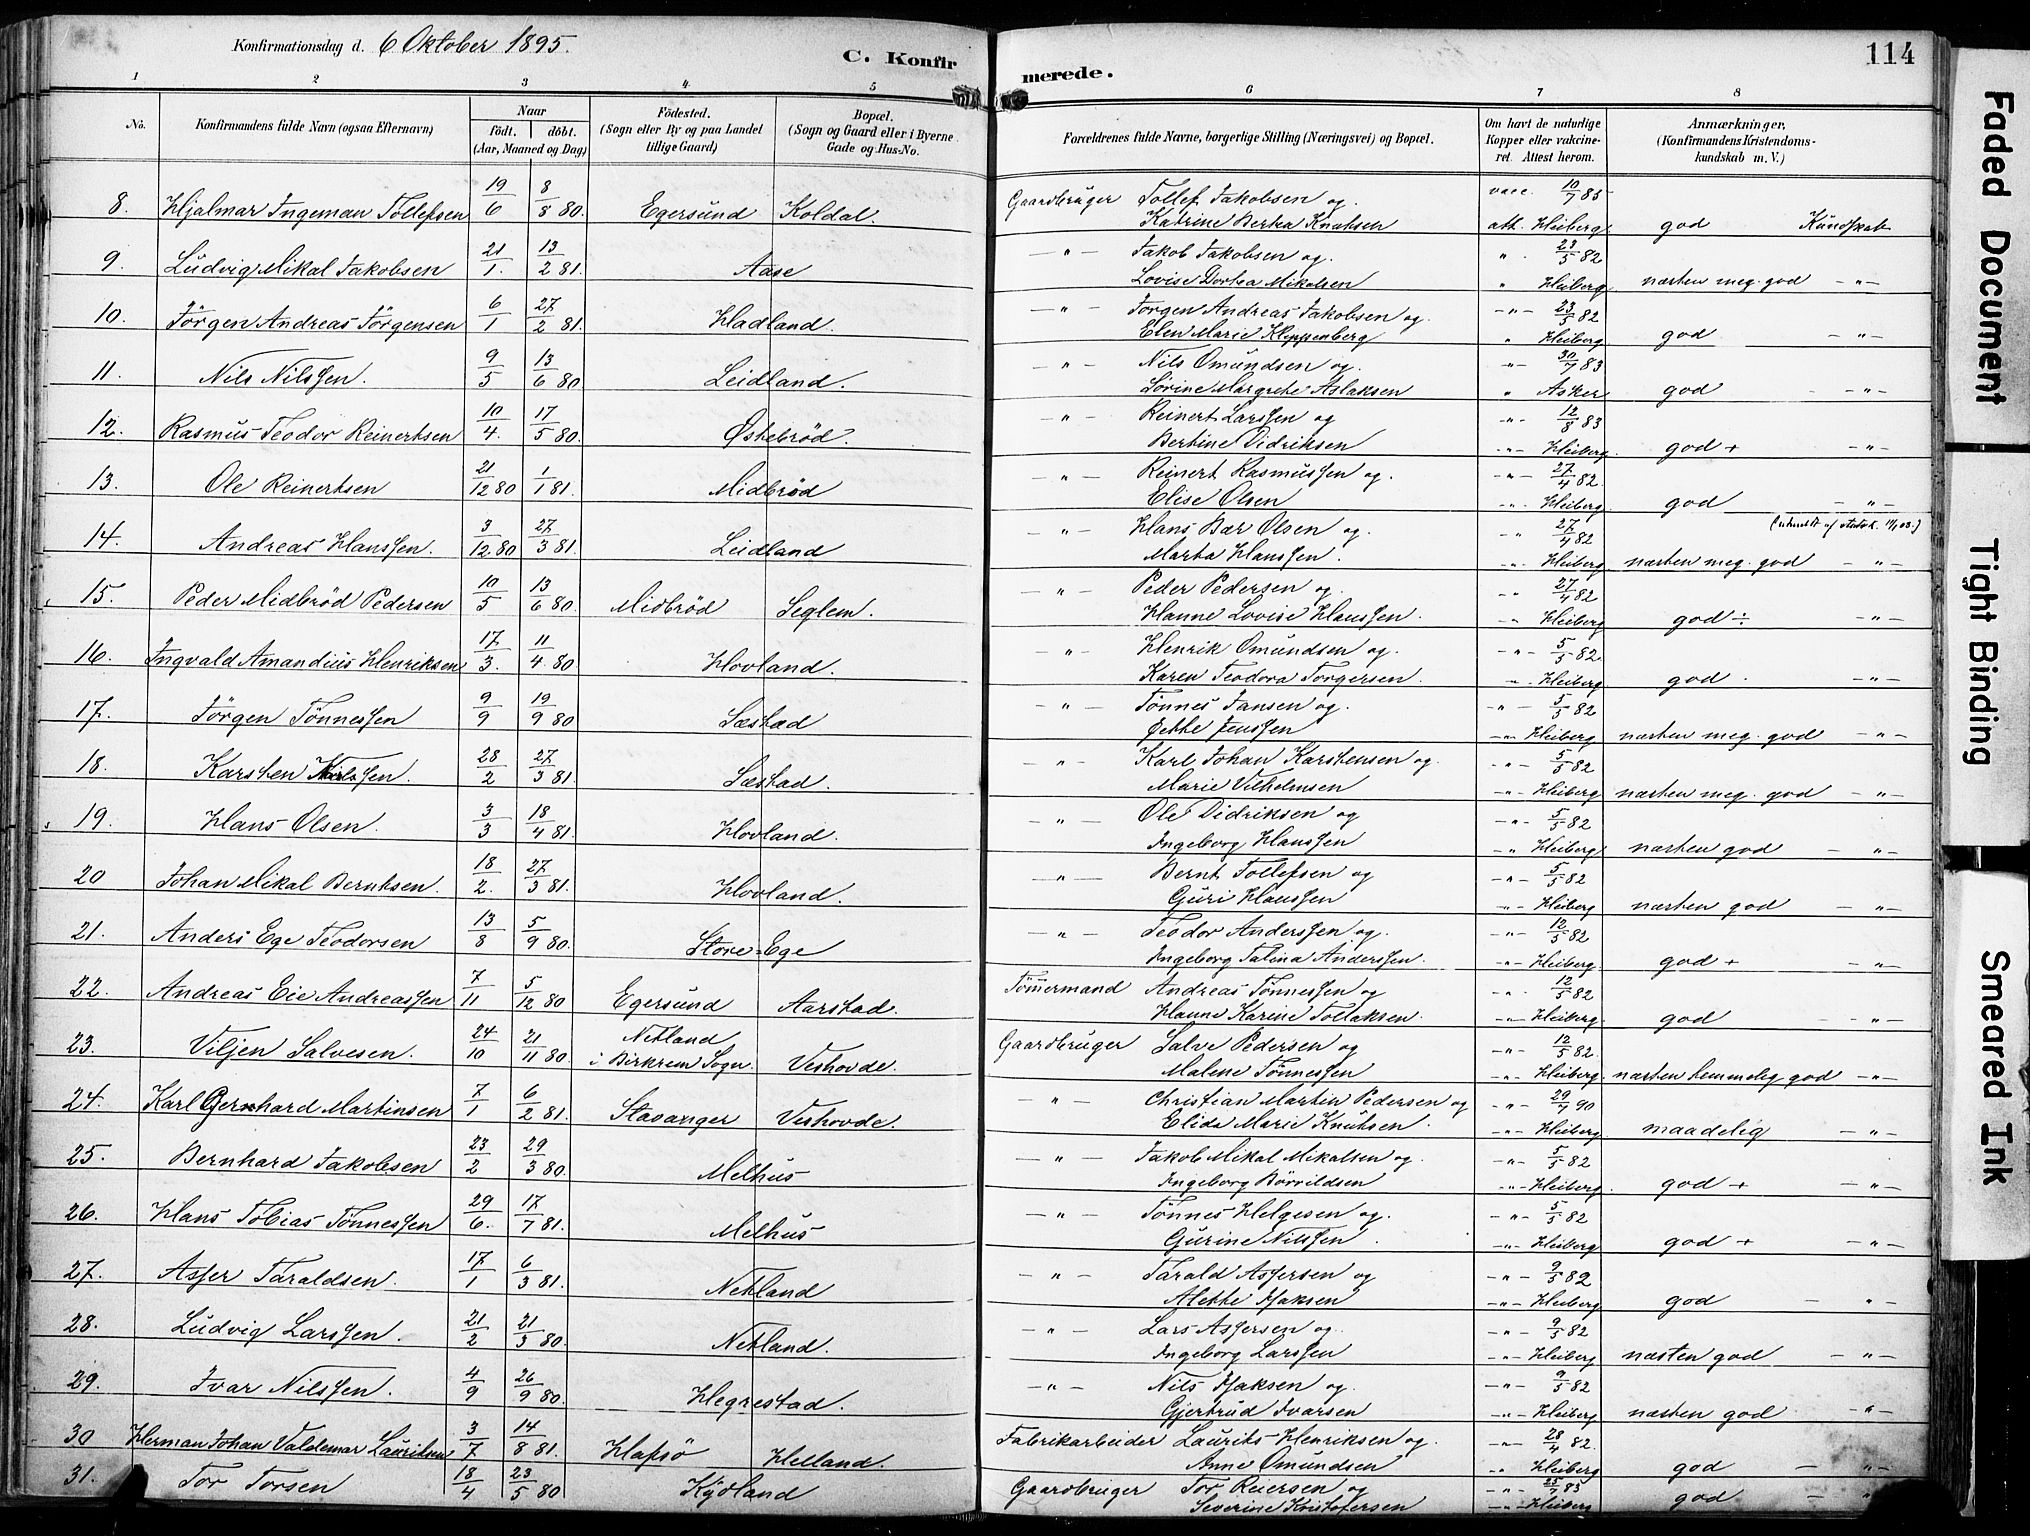 Konfirmationsdag d. 6 Oktober 1895.
C. Konfirmerede.
114
1 2 3 4 5 6 7 8
No.
Konfirmandens fulde Navn (ogsaa Efternavn)
Naar
födt. döbt.
(Aar, Maaned og Dag)
Födested.
(Sogn eller By og paa Landet
tillige Gaard)
Bopæl.
(Sogn og Gaard eller i Byerne
Gade og Hus-No.
Forældrenes fulde Navne, borgerlige Stilling (Næringsvei) og Bopæl.
Om havt de naturlige
Kopper eller vakcine-
ret. Attest herom.
Anmærkninger,
(Konfirmandens Kristendoms-
kundskab m. V.)
8. Hjalmar Ingeman Tollefsen 19/6 8/8 80 Egersund Koldal. Gaardbruger Tollef Jakobsen og vacc. 10/7 85
Katrine Bertea Knutsen att. Heiberg god Kundskab
9. Ludvig Mikal Jakobsen 21/1. 13/2 81 Aase —"— Jakob Jakobsen og. " 23/5 82
Lovise Dortea Mikalsen " Heiberg næsten meg. god —"—
10. Jörgen Andreas Jörgensen 6/1 27/2 81. Hadland. —"— Jörgen Andreas Jakobsen og. —"— 23/5 82
Elen Marie Kleppenberg " Heiberg god —"—
11. Nils Nilssen. 9/5 13/6 80 Leidland. —"— Nils Omundsen og. —"— 30/7 83
Sörine Margrethe Aslaksen " Asker god —"—
12. Rasmus Teodor Reinertsen 10/4. 17/5 80. Østebröd. —"— Reinert Larssen og —"— 12/8 83
Bertine Didriksen —"— Heiberg. god + —"—
13. Ole Reinertsen 21/12 80 1/1 81. Midbröd —"— Reinert Rasmussen og. —"— 27/4 82.
Elise Olsen —"— Heiberg. god —"—
14. Andreas Hanssen. 3/12 80 27/3 81. Leidland —"— Hans Bær Olsen og. —"— 27/4 82
Marta Hanssen. —"— Heiberg næsten meg. god —"—
15. Peder Midbröd Pedersen 10/5 13/6 80. Midbröd Seglem. —"— Peder Pedersen og. —"— 27/4 82
Hanne Lovise Hanssen. —"— Heiberg god ÷ —"—
16. Ingvald Amandius Henriksen 17/3. 11/4 80 Hovland. —"— Henrik Omundsen og. —"— 5/5 82.
Karen Teodora Torgersen. —"— Heiberg god. —"—
17. Jörgen Tönnessen 9/9 19/9 80 Sæstad —"— Tönnes Jansen og. —"— 5/5 82
Jette Jenssen —"— Heiberg næsten meg. god —"—
18. Karsten Karlssen. 28/2 27/3 81. Sæstad. —"— Karl Johan Karstensen og —"— 5/5 82
Marie Vilhelmsen —"— Heiberg næsten meg. god —"—
19. Hans Olsen. 3/3 18/4 81. Hovland. —"— Ole Didriksen og —"— 5/5 82
Ingeborg Hanssen —"— Heiberg næsten god —"—
20 Johan Mikal Berntsen. 18/2. 27/3 81. Hovland. —"— Bernt Tollefsen og —"— 5/5 82
Guri Hanssen —"— Heiberg næsten god —"—
21. Anders Ege Teodorsen 13/8 5/9 80. Store-Ege —"— Teodor Anderssen og. —"— 12/5 82
Ingeborg Talina Anderssen. —"— Heiberg. god + —"—
22. Andreas Eie Andreassen 7/11 5/12 80 Egersund Aarstad. Tömmermand Andreas Tönnessen og " 12/5 82
Hanne Karine Tollaksen. —"— Heiberg god —"—
23. Viljen Salvesen. 24/10 21/11 80. Netland i Birkrem Sogn. Veshovde. Gaardbruger Salve Pedersen og —"— 12/5 82.
Malene Tönnessen —"— Heiberg næsten temmelig god —"—
24. Karl Gernhard Martinsen 7/1 6/2 81. Stavanger Veshovde. —"— Christian Martin Pedersen og —"— 29/7 90
Elida Marie Knutsen. —"— Heiberg maadelig —"—
25. Bernhard Jakobsen 23/2 29/3 80. Melhus —"— Jakob Mikal Mikalsen og. —"— 5/5 82
Ingeborg Börrildsen —"— Heiberg. god + —"—
26. Hans Tobias Tönnessen 29/6. 17/7 81. Melhus —"— Tönnes Helgesen og. —"— 5/5 82
Gurine Nilssen. —"— Heiberg god + —"—
27. Asser Taraldsen. 17/1 6/3 81. Netland —"— Tarald Assersen og —"— 9/5 82
Alette Isaksen —"— Heiberg god —"—
28. Ludvig Larssen. 21/2 21/3 80. Netland. —"— Lars Assersen og. —"— 9/5 82
Ingeborg Larssen —"— Heiberg næsten god —"—
29. Ivar Nilssen. 4/9 26/9 80. Hegrestad. —"— Nils Isaksen og. —"— 9/5 82
Gjertrud Ivarsen —"— Heiberg næsten god "
30 Herman Johan Valdemar Lauritsen 3/7 14/8 81. Hafsö Helland. Fabrikarbeider Laurits Henriksen og. —"— 28/4 82.
Anne Omundsen " Heiberg god —"—
31. Tor Torsen 18/4 23/5 80 Kydland Gaardbruger Tor Reiersen og —"— 25/7 83
Severine Kristofersen —"— Heiberg god —"
Faded Document
Tight Binding
Smeared Ink